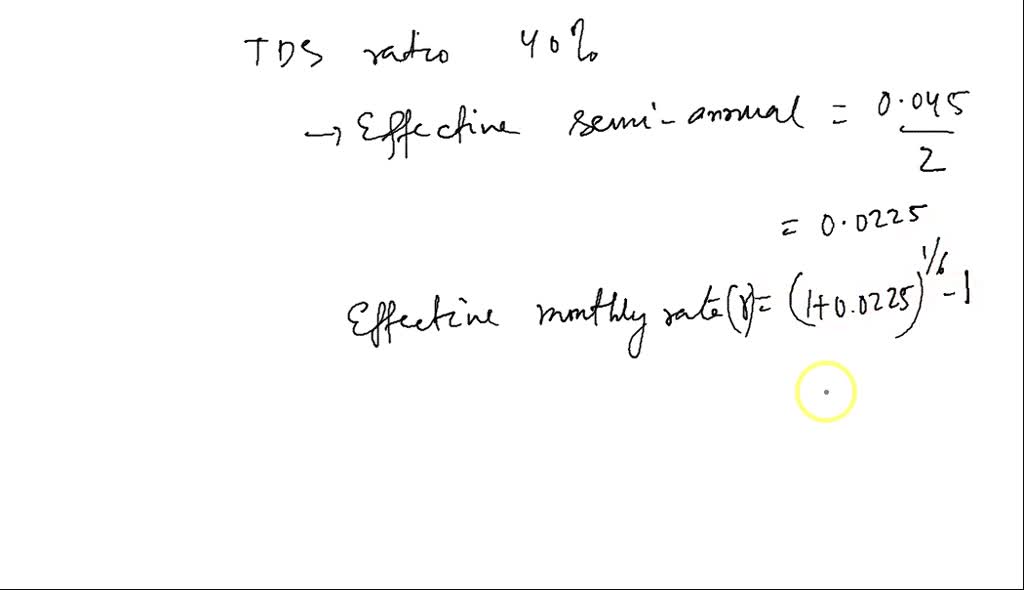 TDS ratio 40%
→ Effective semi-annual = 0.045/2
= 0.0225
Effective monthly rate(r) = (1+0.0225)^1/6 - 1